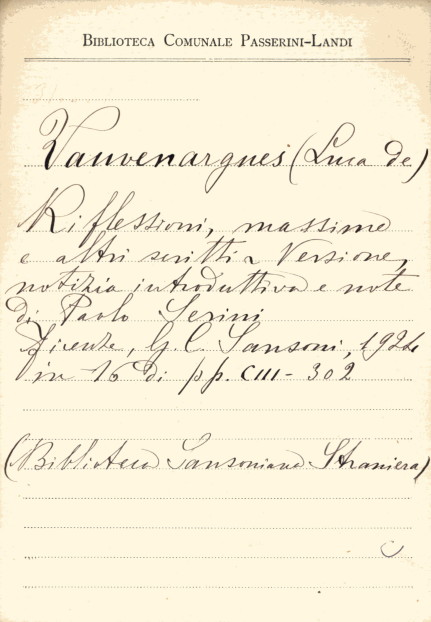 BIBLIOTECA COMUNALE PASSERINI-LANDI
Vauvenargues (Luca de)
Riflessioni, massime
e altri scritti Versione,
notizia introduttiva e note
di Paolo Serini
Firenze, G. C. Sansoni, 1924
in 16 di pp. CIII - 302
(Biblioteca Sansoniana Straniera)